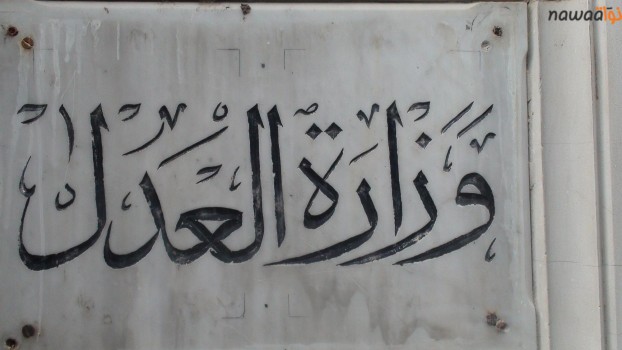 nawaaة
وزارة العدل